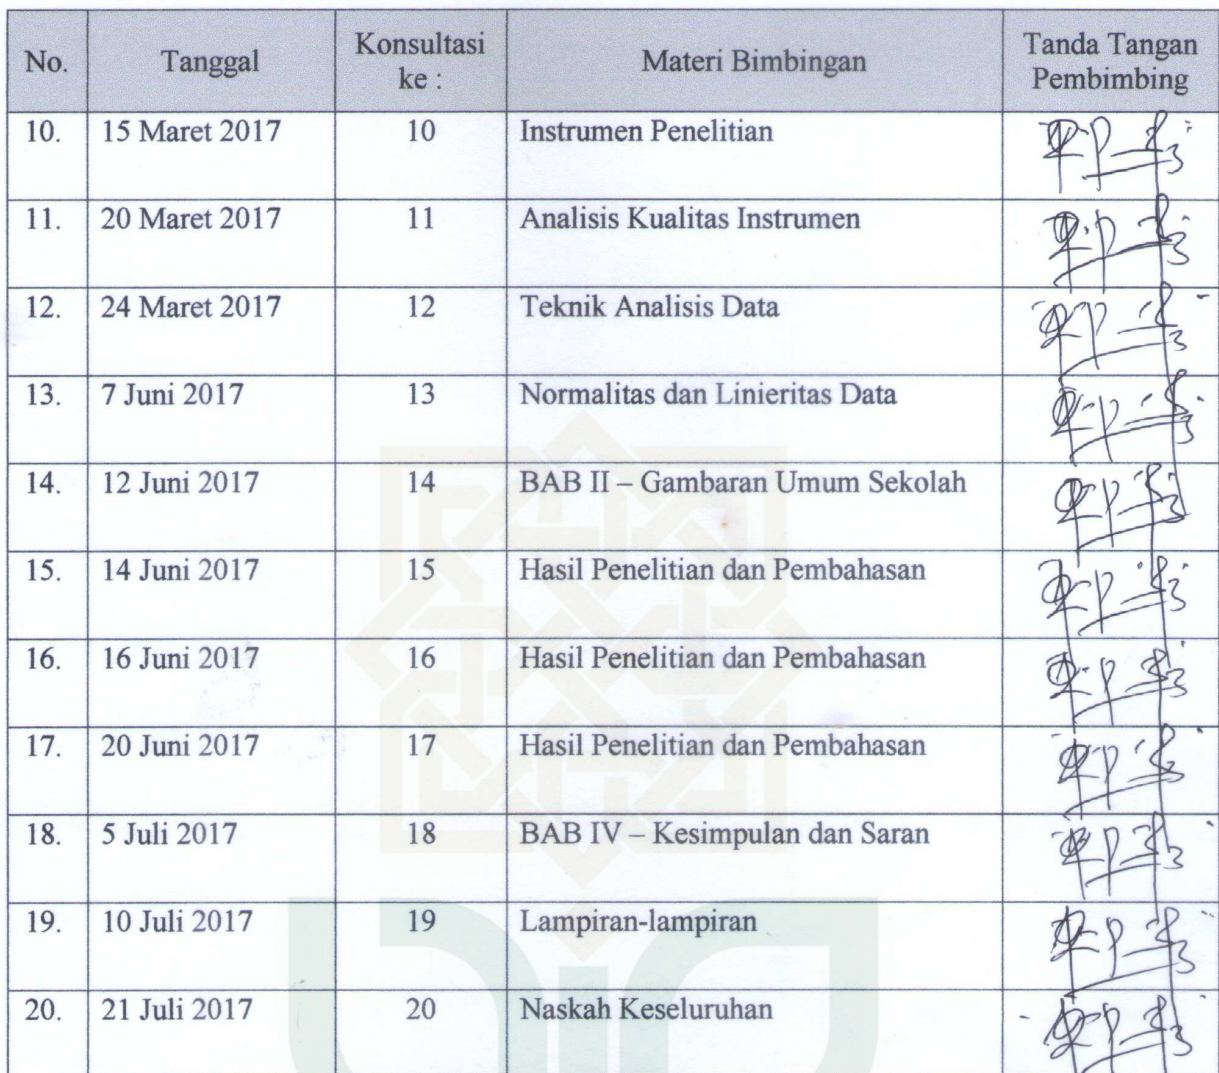 No. Tanggal Konsultasi ke : Materi Bimbingan Tanda Tangan Pembimbing
10. 15 Maret 2017 10 Instrumen Penelitian
11. 20 Maret 2017 11 Analisis Kualitas Instrumen
12. 24 Maret 2017 12 Teknik Analisis Data
13. 7 Juni 2017 13 Normalitas dan Linieritas Data
14. 12 Juni 2017 14 BAB II – Gambaran Umum Sekolah
15. 14 Juni 2017 15 Hasil Penelitian dan Pembahasan
16. 16 Juni 2017 16 Hasil Penelitian dan Pembahasan
17. 20 Juni 2017 17 Hasil Penelitian dan Pembahasan
18. 5 Juli 2017 18 BAB IV – Kesimpulan dan Saran
19. 10 Juli 2017 19 Lampiran-lampiran
20. 21 Juli 2017 20 Naskah Keseluruhan